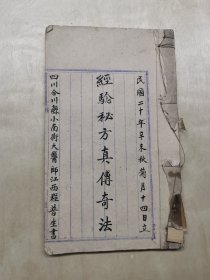 民國二十年辛未秋菊月十四日立
經驗秘方真傳奇法
四川合川縣小南街大醫師江西羅普生書